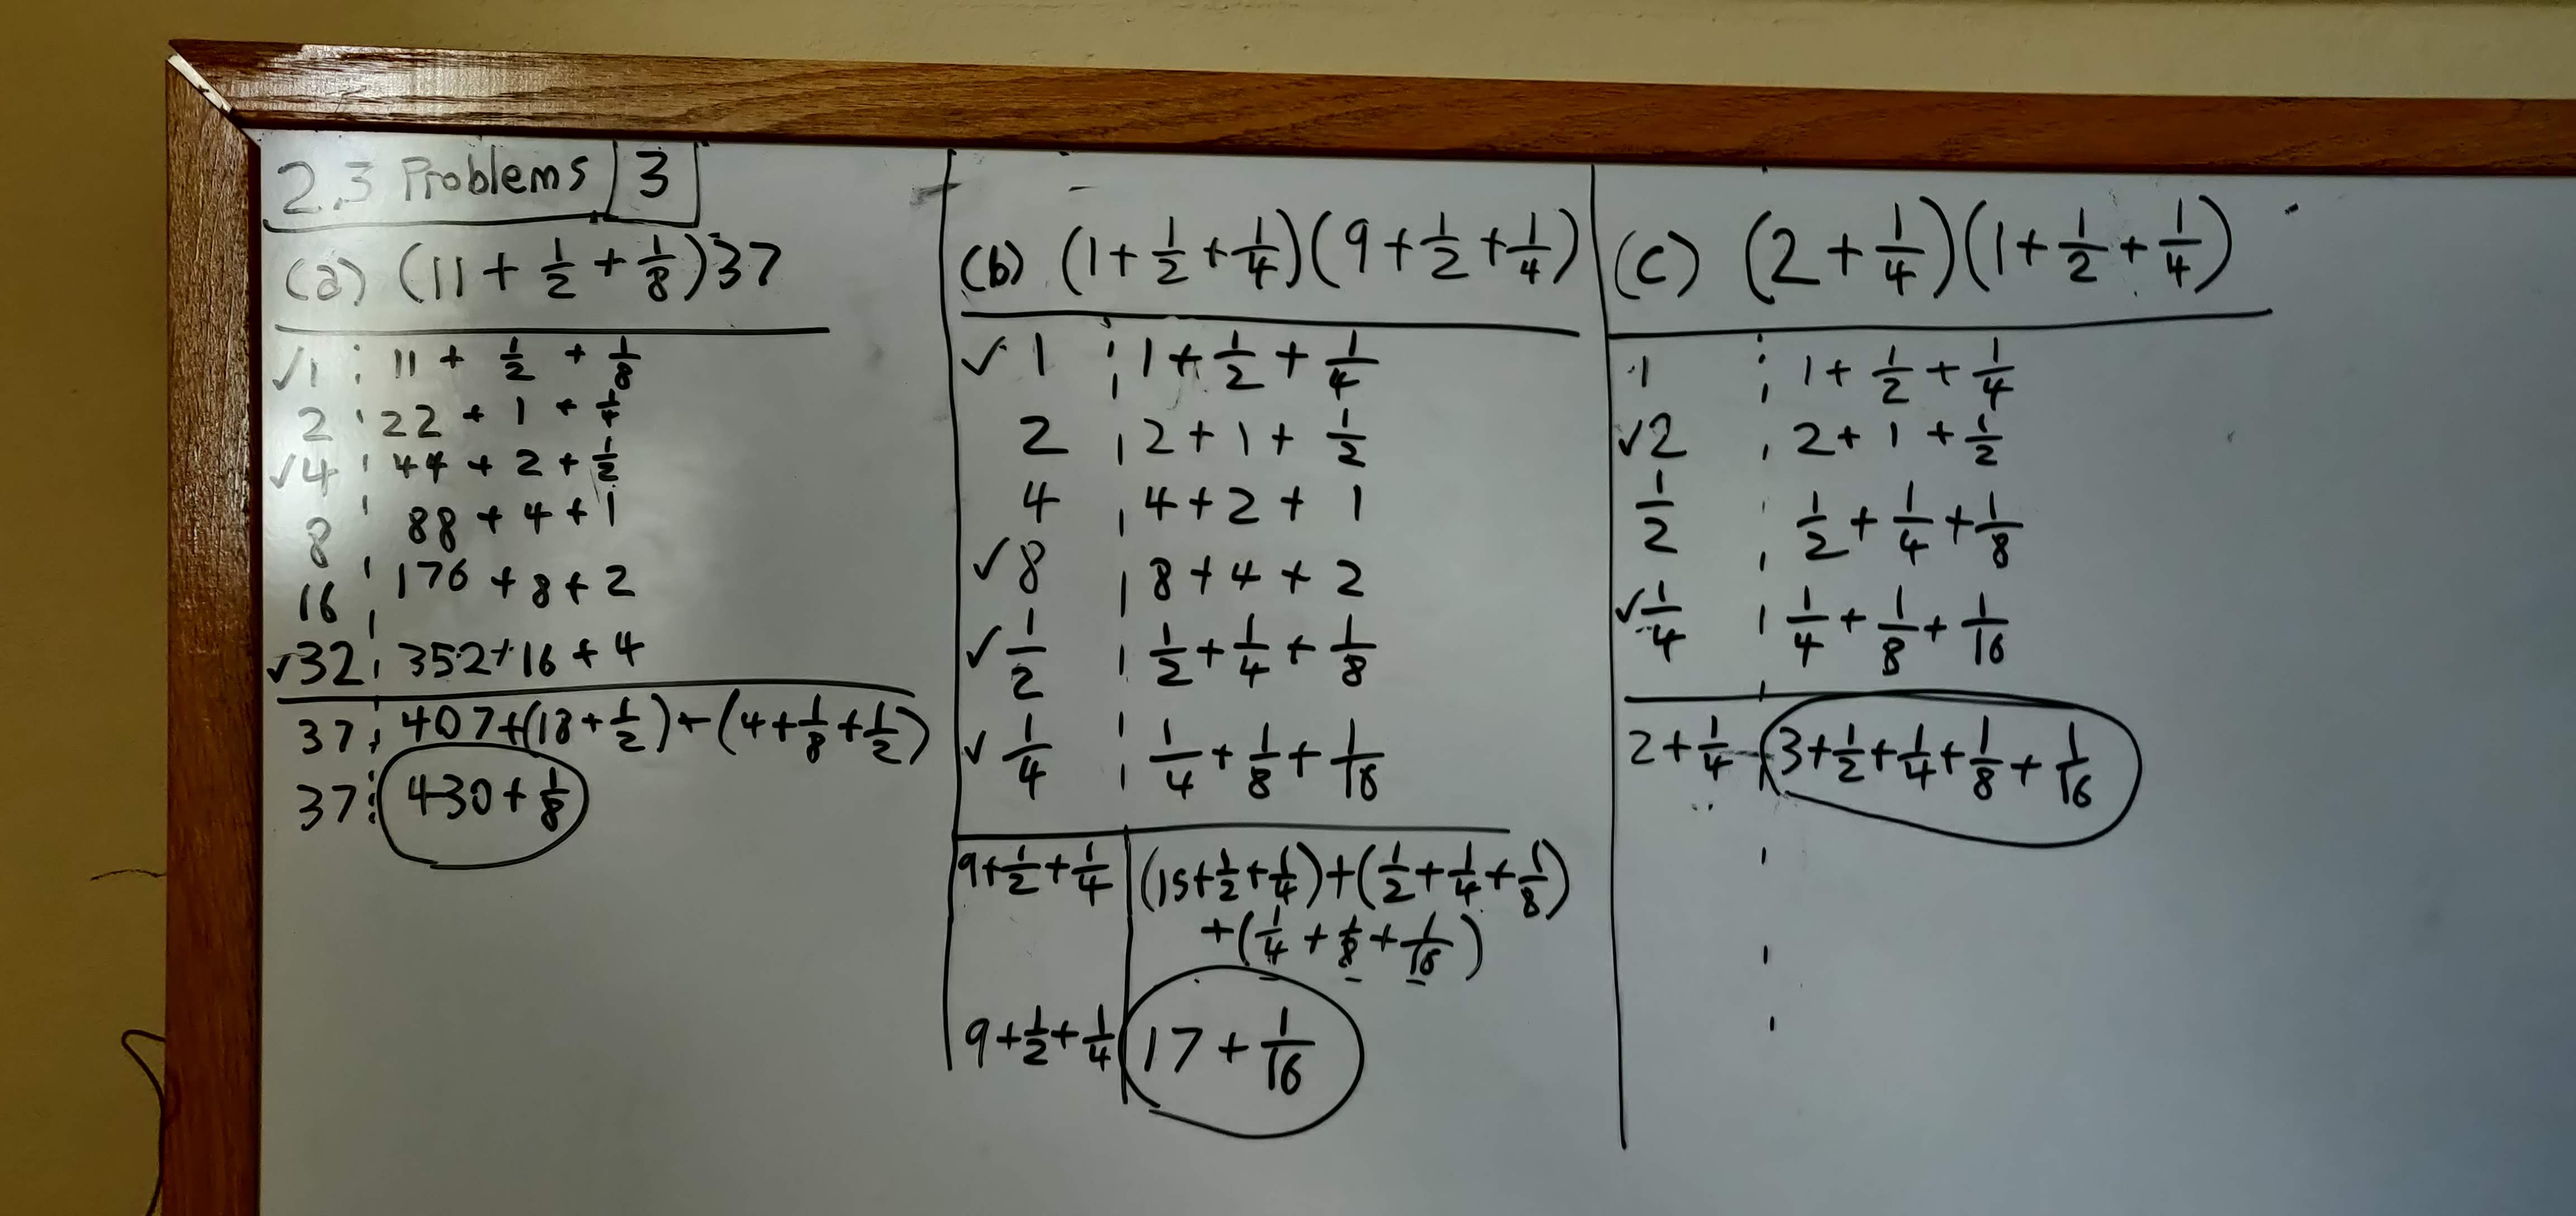 2.3 Problems 3
(a) (11 + 1/2 + 1/8)37
✓1 11 + 1/2 + 1/8
2 22 + 1 + 1/4
✓4 44 + 2 + 1/2
8 88 + 4 + 1
16 176 + 8 + 2
✓32 352 + 16 + 4
37 407 + (18 + 1/2) + (4 + 1/8 + 1/2)
37 430 + 1/8
(b) (1 + 1/2 + 1/4)(9 + 1/2 + 1/4)
✓ 1 1 + 1/2 + 1/4
2 2 + 1 + 1/2
4 4 + 2 + 1
✓ 8 8 + 4 + 2
✓ 1/2 1/2 + 1/4 + 1/8
✓ 1/4 1/4 + 1/8 + 1/16
9 + 1/2 + 1/4 (15 + 1/2 + 1/4) + (1/2 + 1/4 + 1/8)
+ (1/4 + 1/8 + 1/16)
9 + 1/2 + 1/4 17 + 1/16
(c) (2 + 1/4)(1 + 1/2 + 1/4)
1 1 + 1/2 + 1/4
✓2 2 + 1 + 1/2
1/2 1/2 + 1/4 + 1/8
✓1/4 1/4 + 1/8 + 1/16
2 + 1/4 3 + 1/2 + 1/4 + 1/8 + 1/16